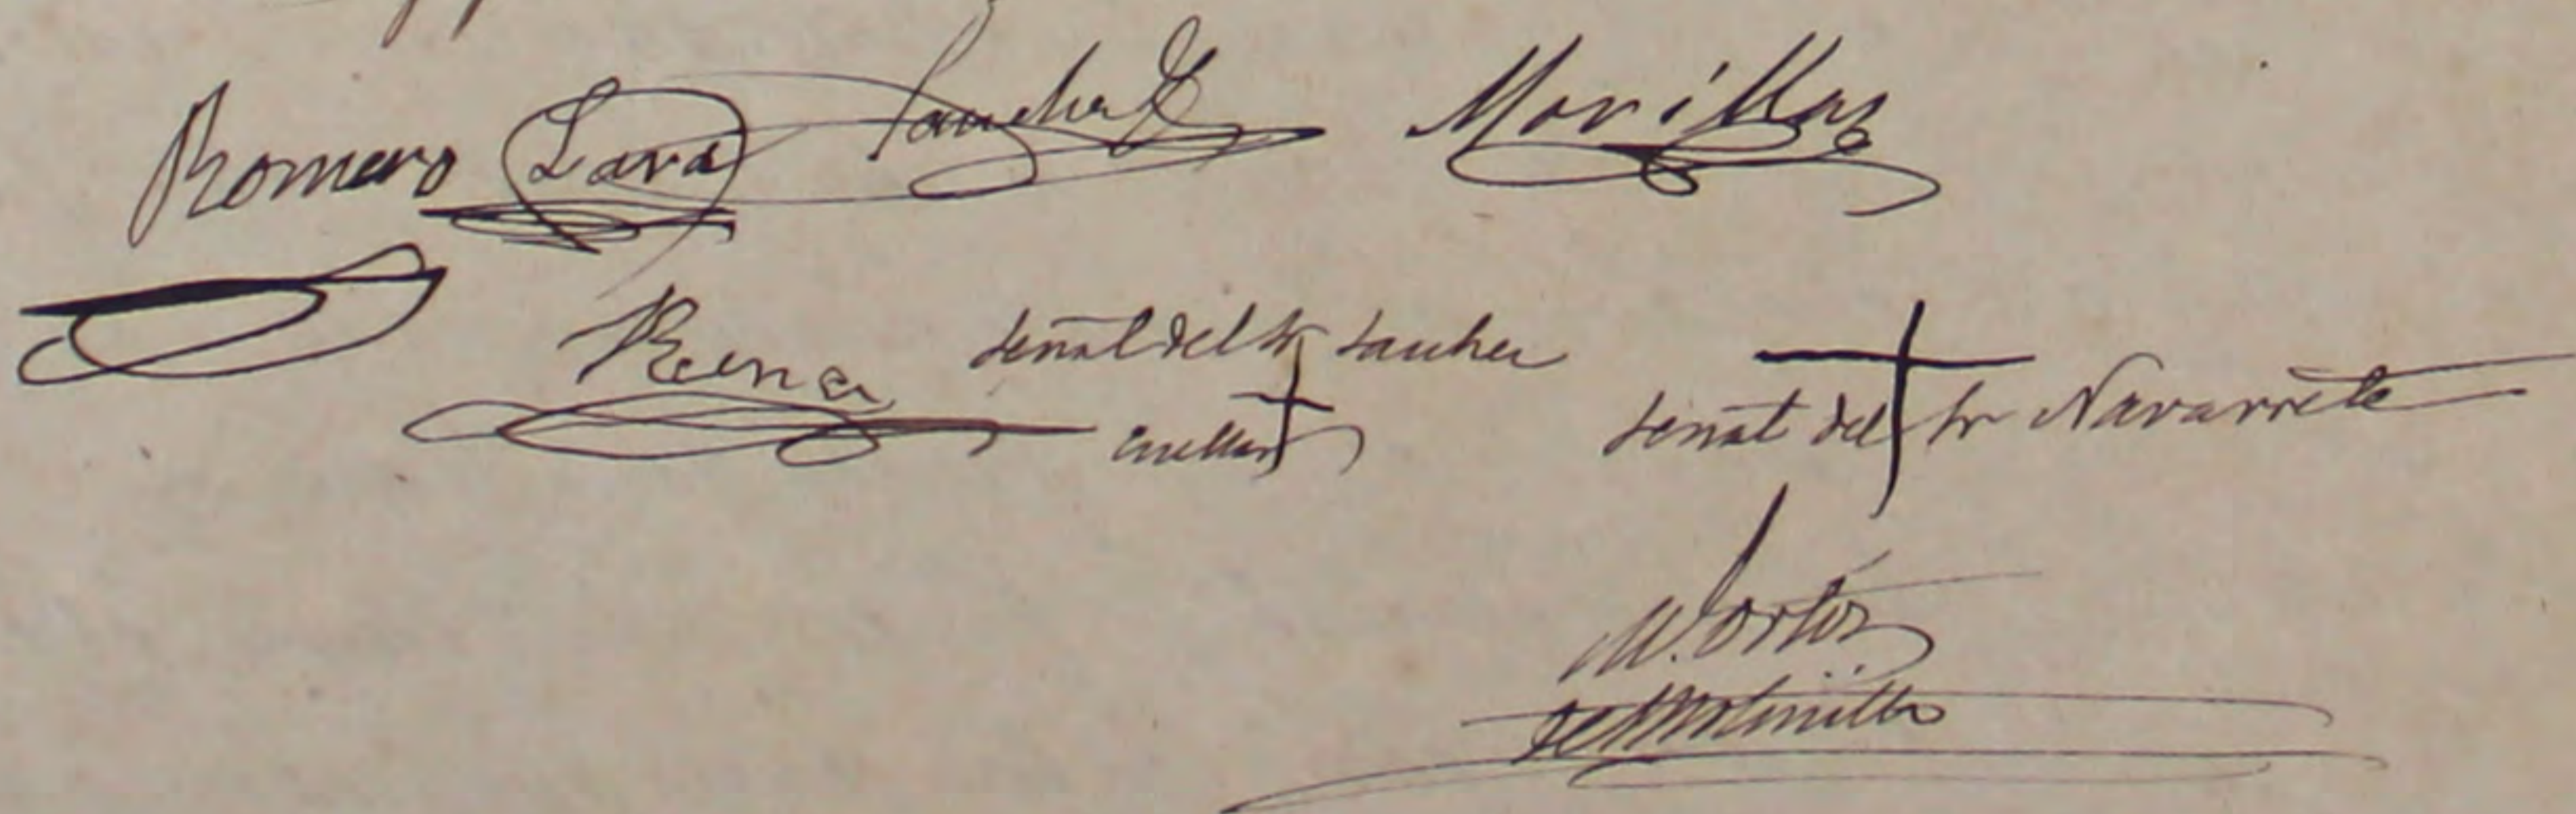 Romero Lara Sanchez Morillas
Reena señal del Sr Sanchez
Cuellar señal del Sr Navarrete
M. Ortiz
del Molinillo